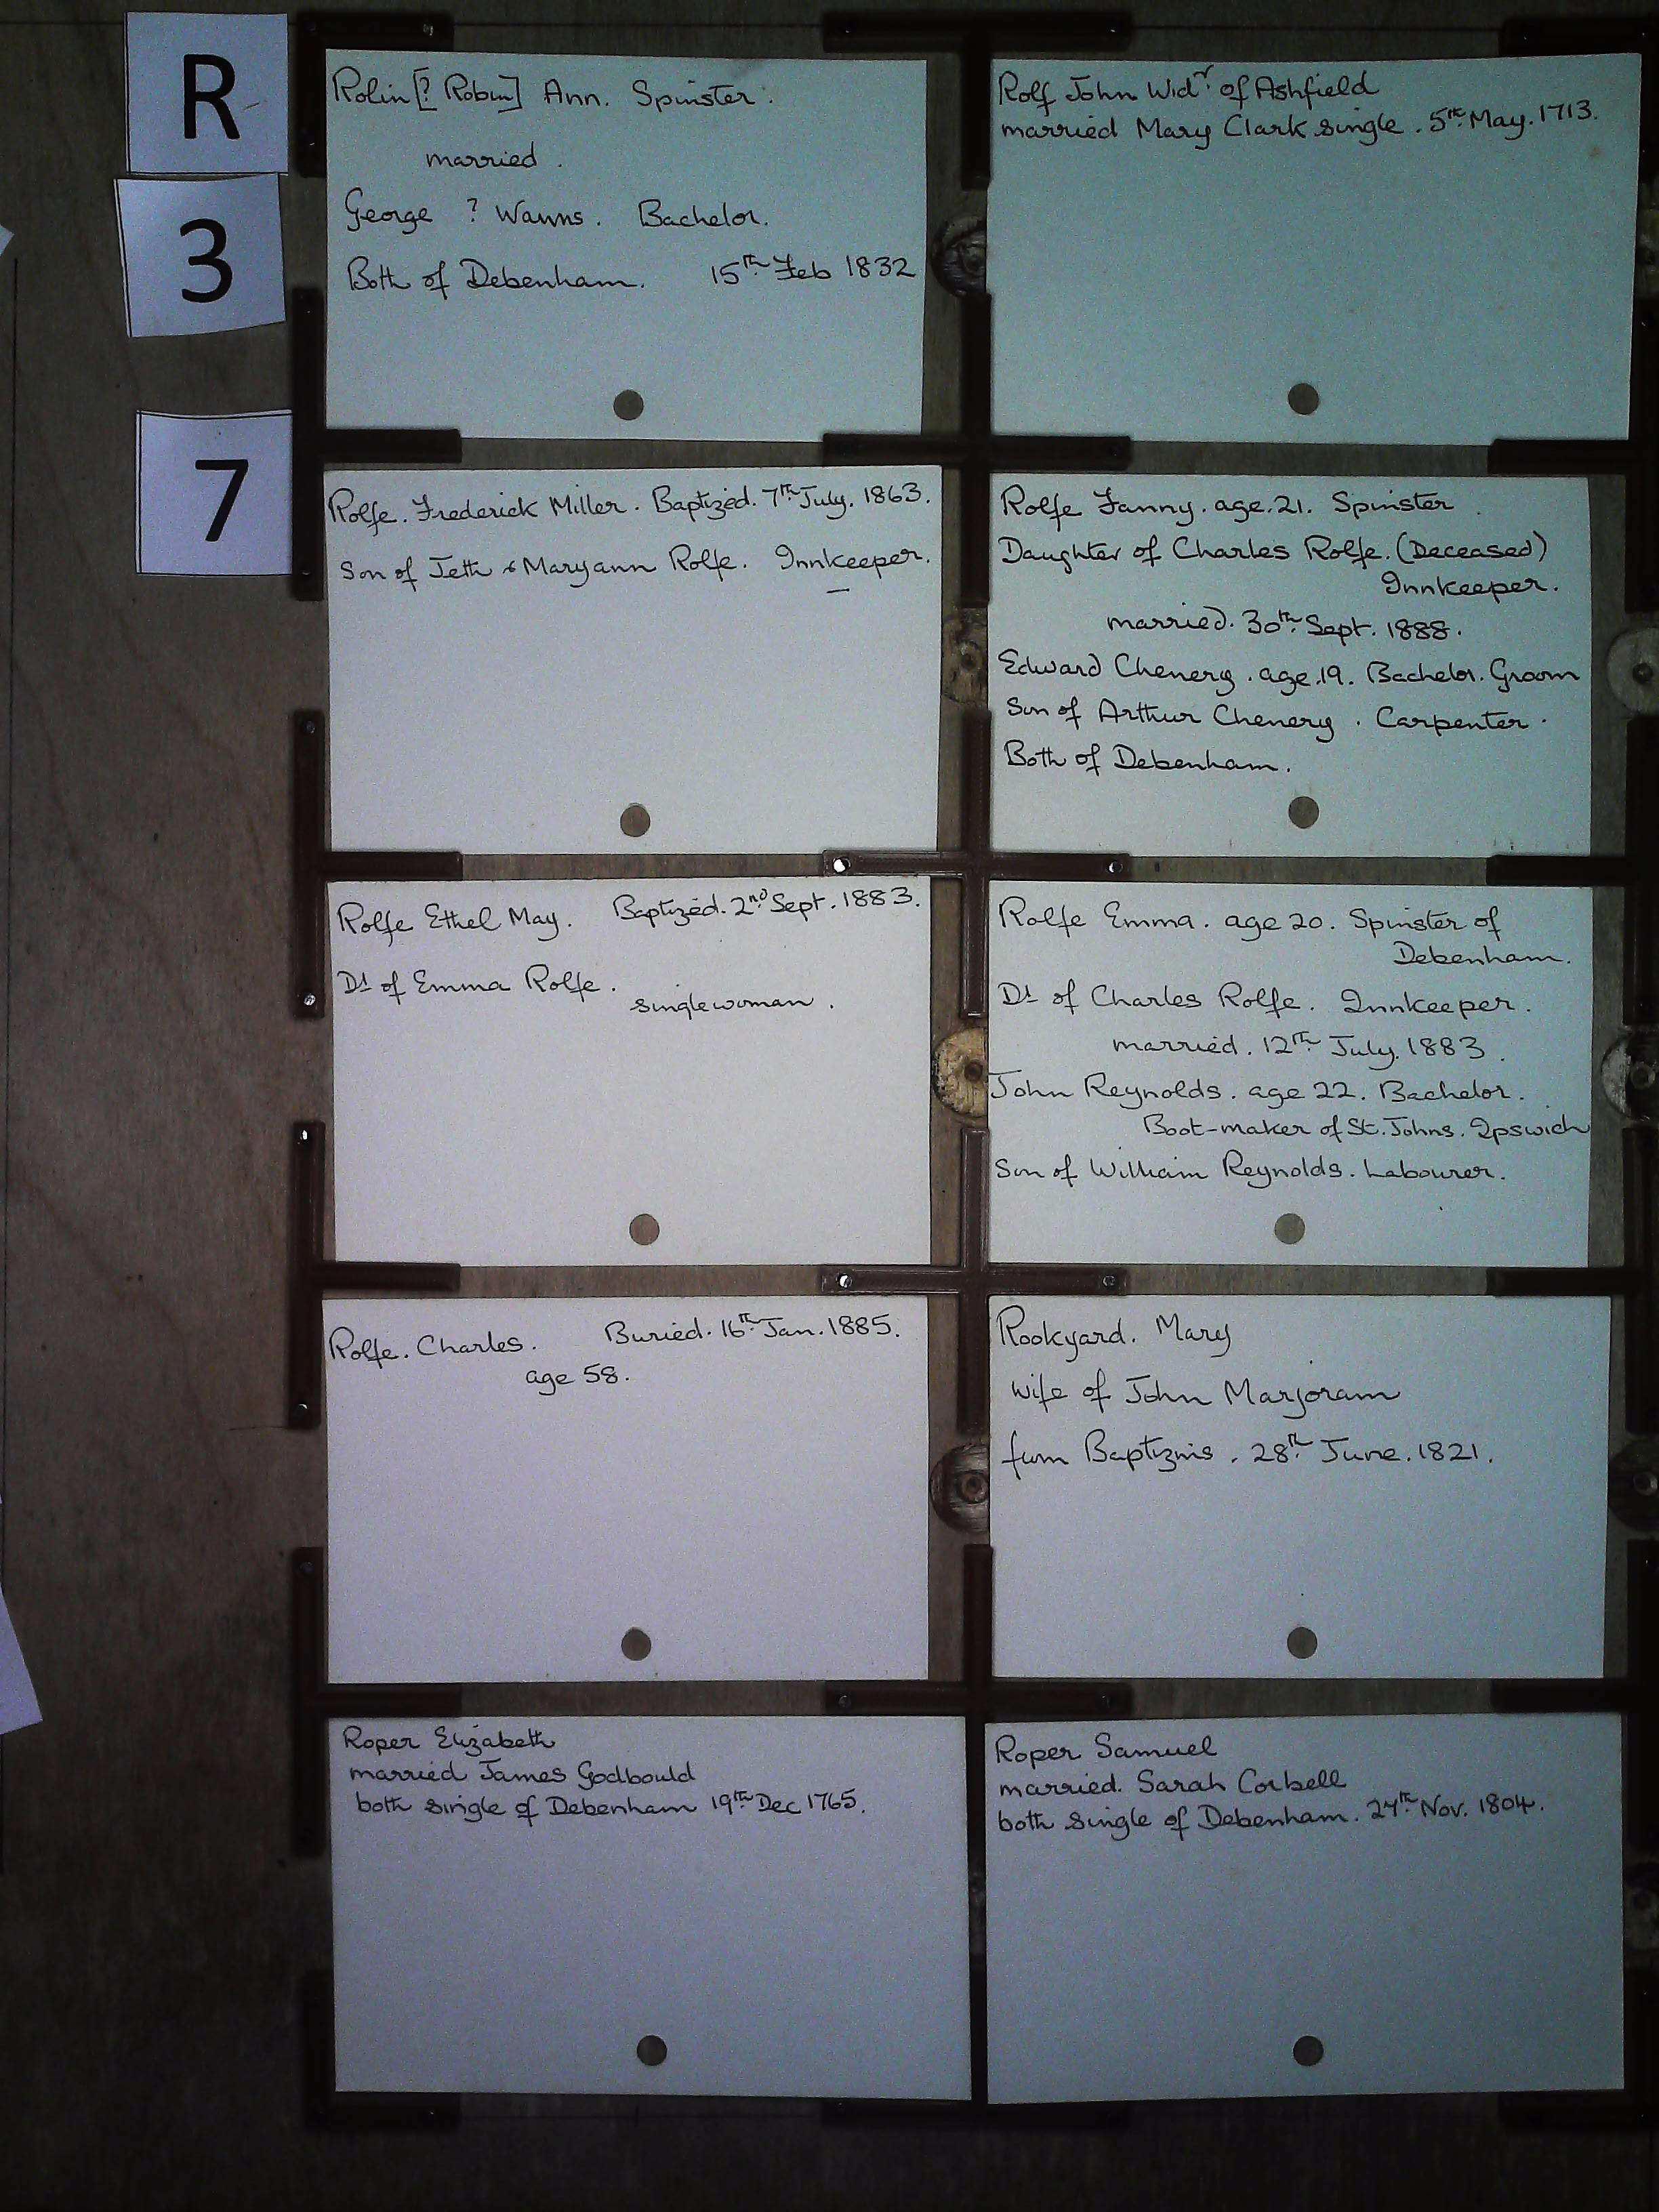 R
3
7
Rolin [? Robin] Ann. Spinster.
married.
George ? Wanns. Bachelor.
Both of Debenham. 15th Feb 1832
Rolf John Widr. of Ashfield
married Mary Clark single. 5th May. 1713.
Rolfe. Frederick Miller. Baptized. 7th July. 1863.
Son of Jeth & Maryann Rolfe. Innkeeper.
Rolfe Fanny. age. 21. Spinster.
Daughter of Charles Rolfe. (Deceased)
Innkeeper.
married. 30th Sept. 1888.
Edward Chenery. age. 19. Bachelor. Groom
Son of Arthur Chenery. Carpenter.
Both of Debenham.
Rolfe Ethel May. Baptized. 2nd Sept. 1883.
Dt of Emma Rolfe.
singlewoman.
Rolfe Emma. age 20. Spinster of
Debenham.
Dt of Charles Rolfe. Innkeeper.
married. 12th July. 1883.
John Reynolds. age 22. Bachelor.
Boot-maker of St. Johns. Ipswich
Son of William Reynolds. Labourer.
Rolfe. Charles. Buried. 16th Jan. 1885.
age 58.
Rookyard. Mary
wife of John Marjoram
from Baptizms. 28th June. 1821.
Roper Elizabeth
married James Godbould
both single of Debenham 19th Dec 1765.
Roper Samuel
married. Sarah Corbell
both single of Debenham. 27th Nov. 1804.